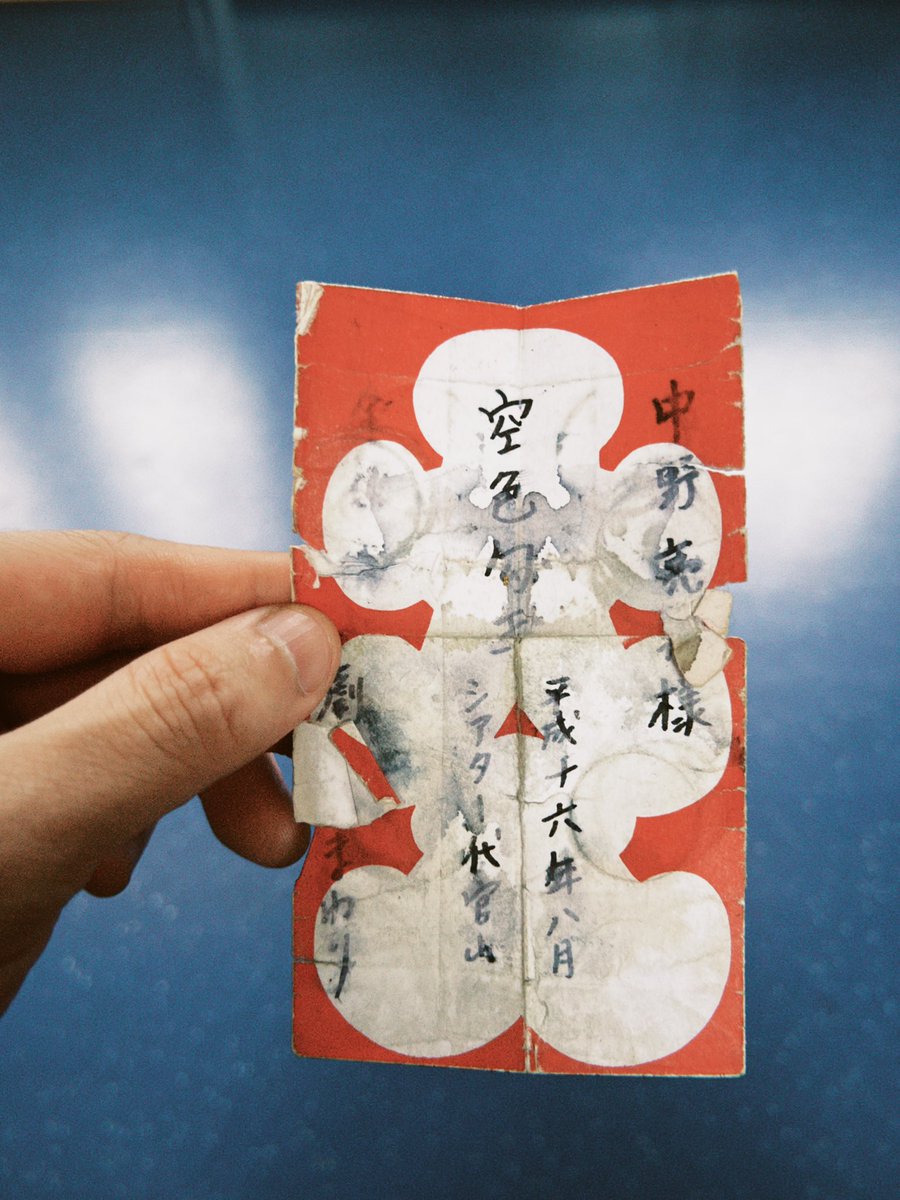 中野亮 様
空色勾玉
平成十六年八月
シアター代官山
劇 まわり